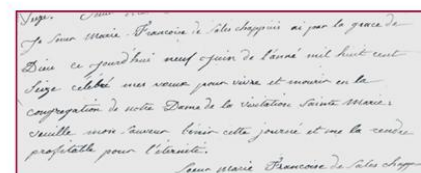 Je Sœur Marie Francoise de Sales chappuis ai par la grace de
Dieu ce jourd'hui neuf juin de l'anné mil huit cent
seize celebré mes vœux pour vivre et mourir en la
congregation de notre Dame de la visitation Sainte Marie.
veuille mon sauveur benir cette journée et me la rendre
profitable pour l'éternité.
Sœur marie Francoise de Sales chapp